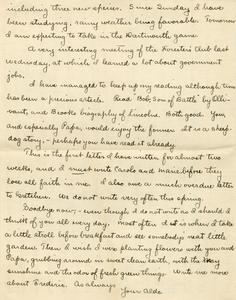 including three new species. Since Sunday I have
been studying, rainy weather being favorable. Tomorrow
I am expecting to take in the Dartmouth game.
A very interesting meeting of the Forestry Club last
Wednesday, at which I learned a lot about government
jobs.
I have managed to keep up my reading although time
has been a precious article. Read "Bob, Son of Battle" by Olli-
vant, and Brooks biography of Lincoln. Both good. You
and especially Papa, would enjoy the former. It is a sheep
dog story, - perhaps you have read it already.
This is the first letter I have written for almost two
weeks, and I must write Carolo and Marie before they
lose all faith in me. I also owe a much overdue letter
to Gretchen. We do not write very often this spring.
Goodbye now, - even though I do not write as I should I
think of you all every day. most often it is when I take
a little stroll before breakfast and see somebody's neat little
garden. Then I wish I were planting flowers with you and
Papa, grubbing around in sweet clean earth, with the
sunshine and the odor of fresh green things. Write me more
about Frederic. As always
Your Aldo